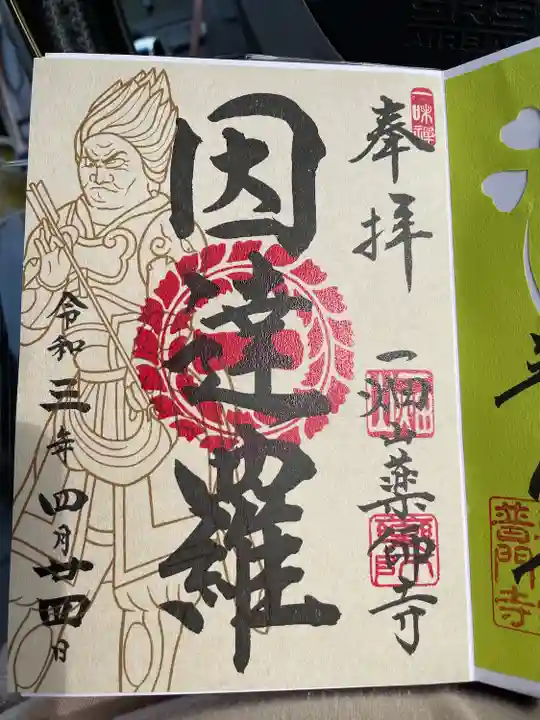 一味禅
奉拝
一畑山薬師寺
因達羅
令和三年四月廿四日
普門寺
AIRBAG